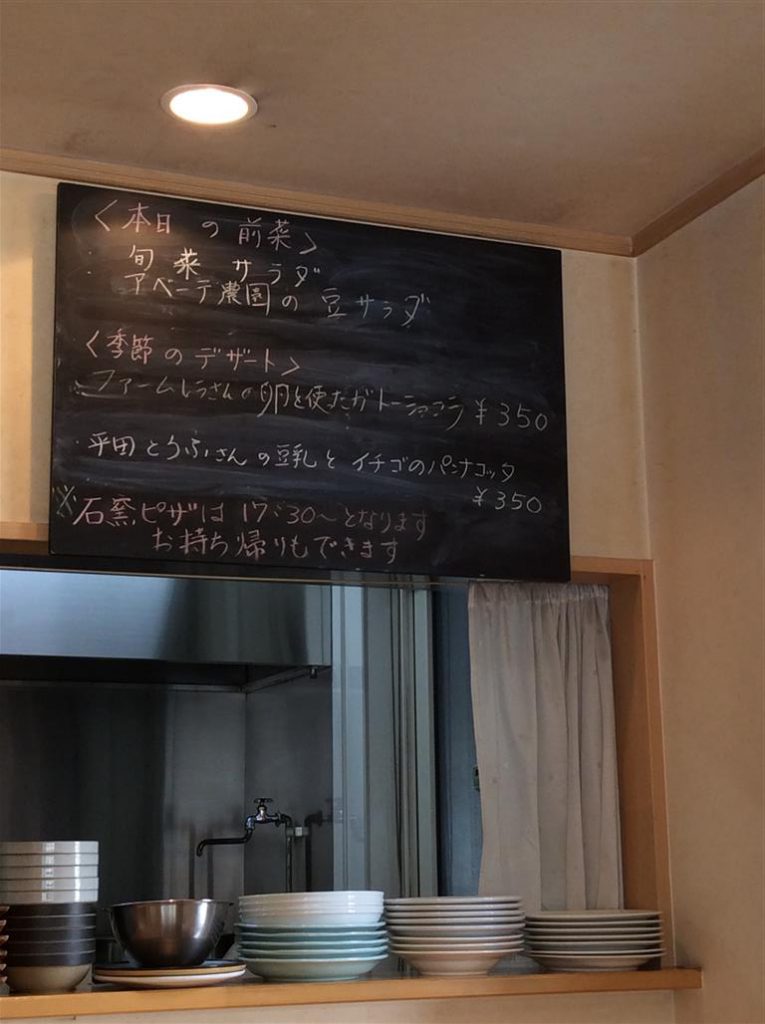 〈本日の前菜〉
旬菜サラダ
アベーテ農園の豆サラダ
〈季節のデザート〉
ファームしらさんの卵を使たガトーショコラ ¥350
平田とうふさんの豆乳とイチゴのパンナコッタ
¥350
※石窯ピザは17:30〜となります
お持ち帰りもできます